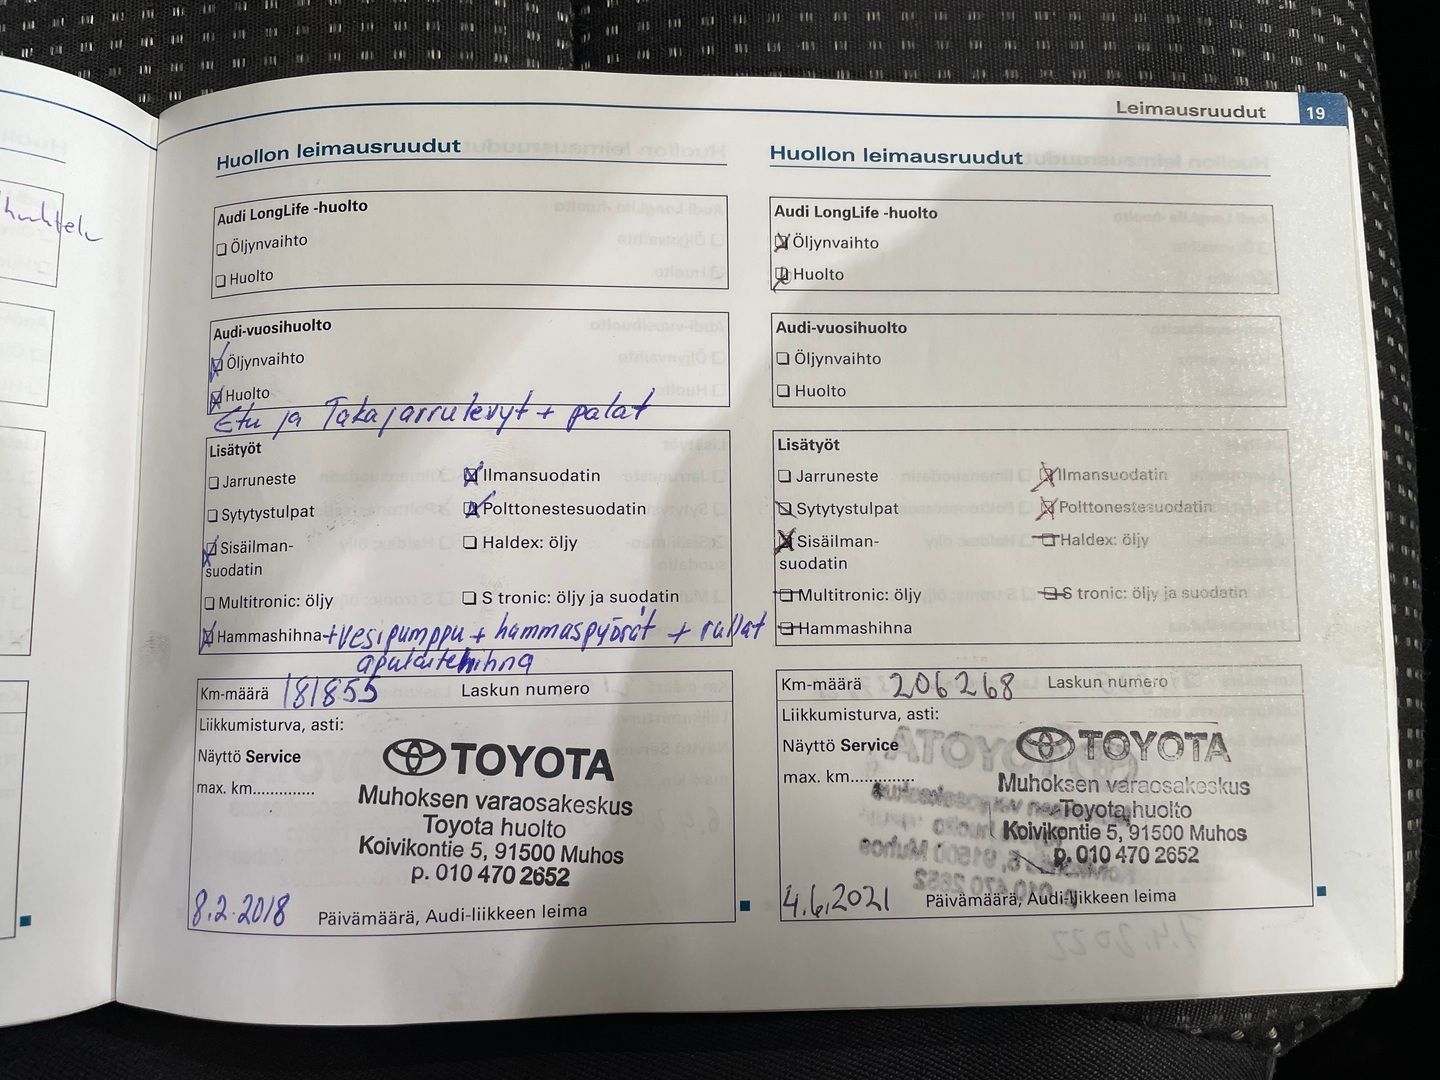 huhtelu
Leimausruudut 19
Huollon leimausruudut
Audi LongLife -huolto
Öljynvaihto
Huolto
Audi-vuosihuolto
Öljynvaihto
Huolto
Etu ja Takajarrulevyt + palat
Lisätyöt
Jarruneste
Ilmansuodatin
Sytytystulpat
Polttonestesuodatin
Sisäilman-
suodatin
Haldex: öljy
Multitronic: öljy
S tronic: öljy ja suodatin
Hammashihna +vesipumppu + hammaspyörät + rullat
apulaitehihna
Km-määrä 181855 Laskun numero
Liikkumisturva, asti:
Näyttö Service
max. km..............
TOYOTA
Muhoksen varaosakeskus
Toyota huolto
Koivikontie 5, 91500 Muhos
p. 010 470 2652
8.2.2018 Päivämäärä, Audi-liikkeen leima
Huollon leimausruudut
Audi LongLife -huolto
Öljynvaihto
Huolto
Audi-vuosihuolto
Öljynvaihto
Huolto
Lisätyöt
Jarruneste
Ilmansuodatin
Sytytystulpat
Polttonestesuodatin
Sisäilman-
suodatin
Haldex: öljy
Multitronic: öljy
S tronic: öljy ja suodatin
Hammashihna
Km-määrä 206268 Laskun numero
Liikkumisturva, asti:
Näyttö Service
max. km..............
TOYOTA
Muhoksen varaosakeskus
Toyota huolto
Koivikontie 5, 91500 Muhos
p. 010 470 2652
4.6.2021 Päivämäärä, Audi-liikkeen leima